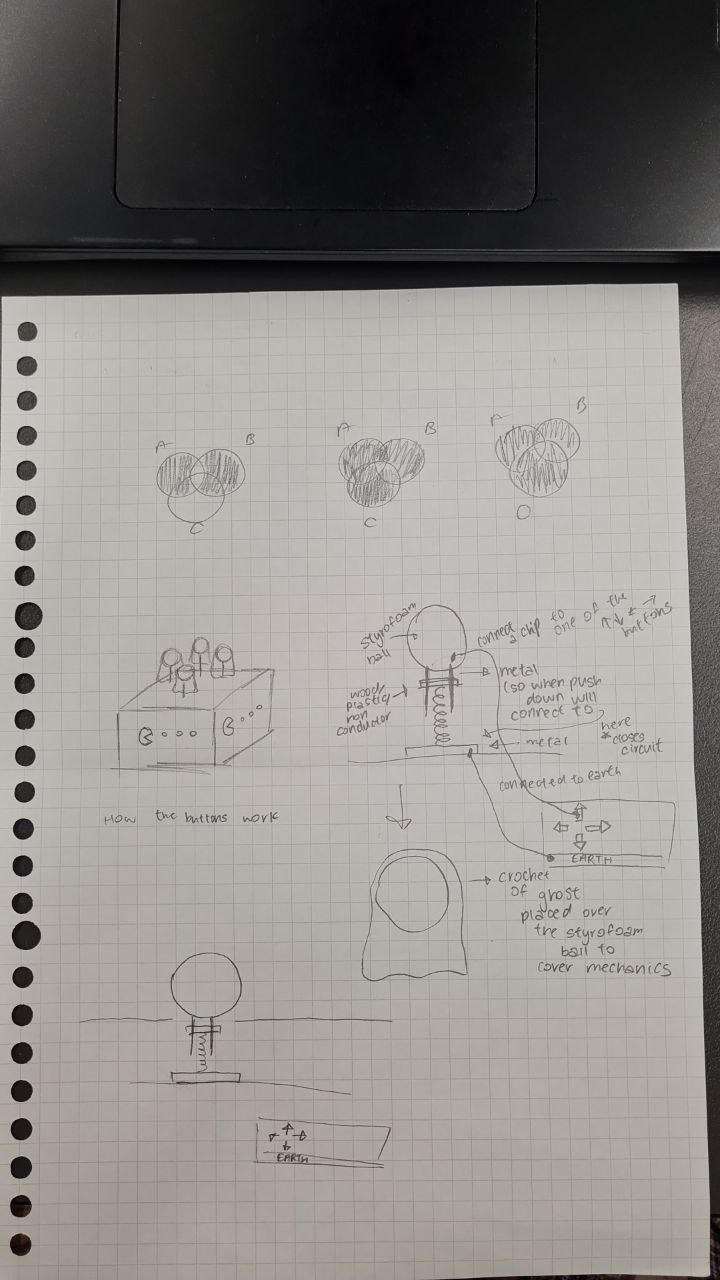 A
B
C
A
B
C
A
B
styrofoam
ball
connect
a chip to
one of the
buttons
metal
(so when push
down will
connect to
here
* closes
circuit
wood/
plastic/
non
conductor
metal
connected to earth
EARTH
How the buttons work
crochet
of ghost
placed over
the styrofoam
ball to
cover mechanics
EARTH